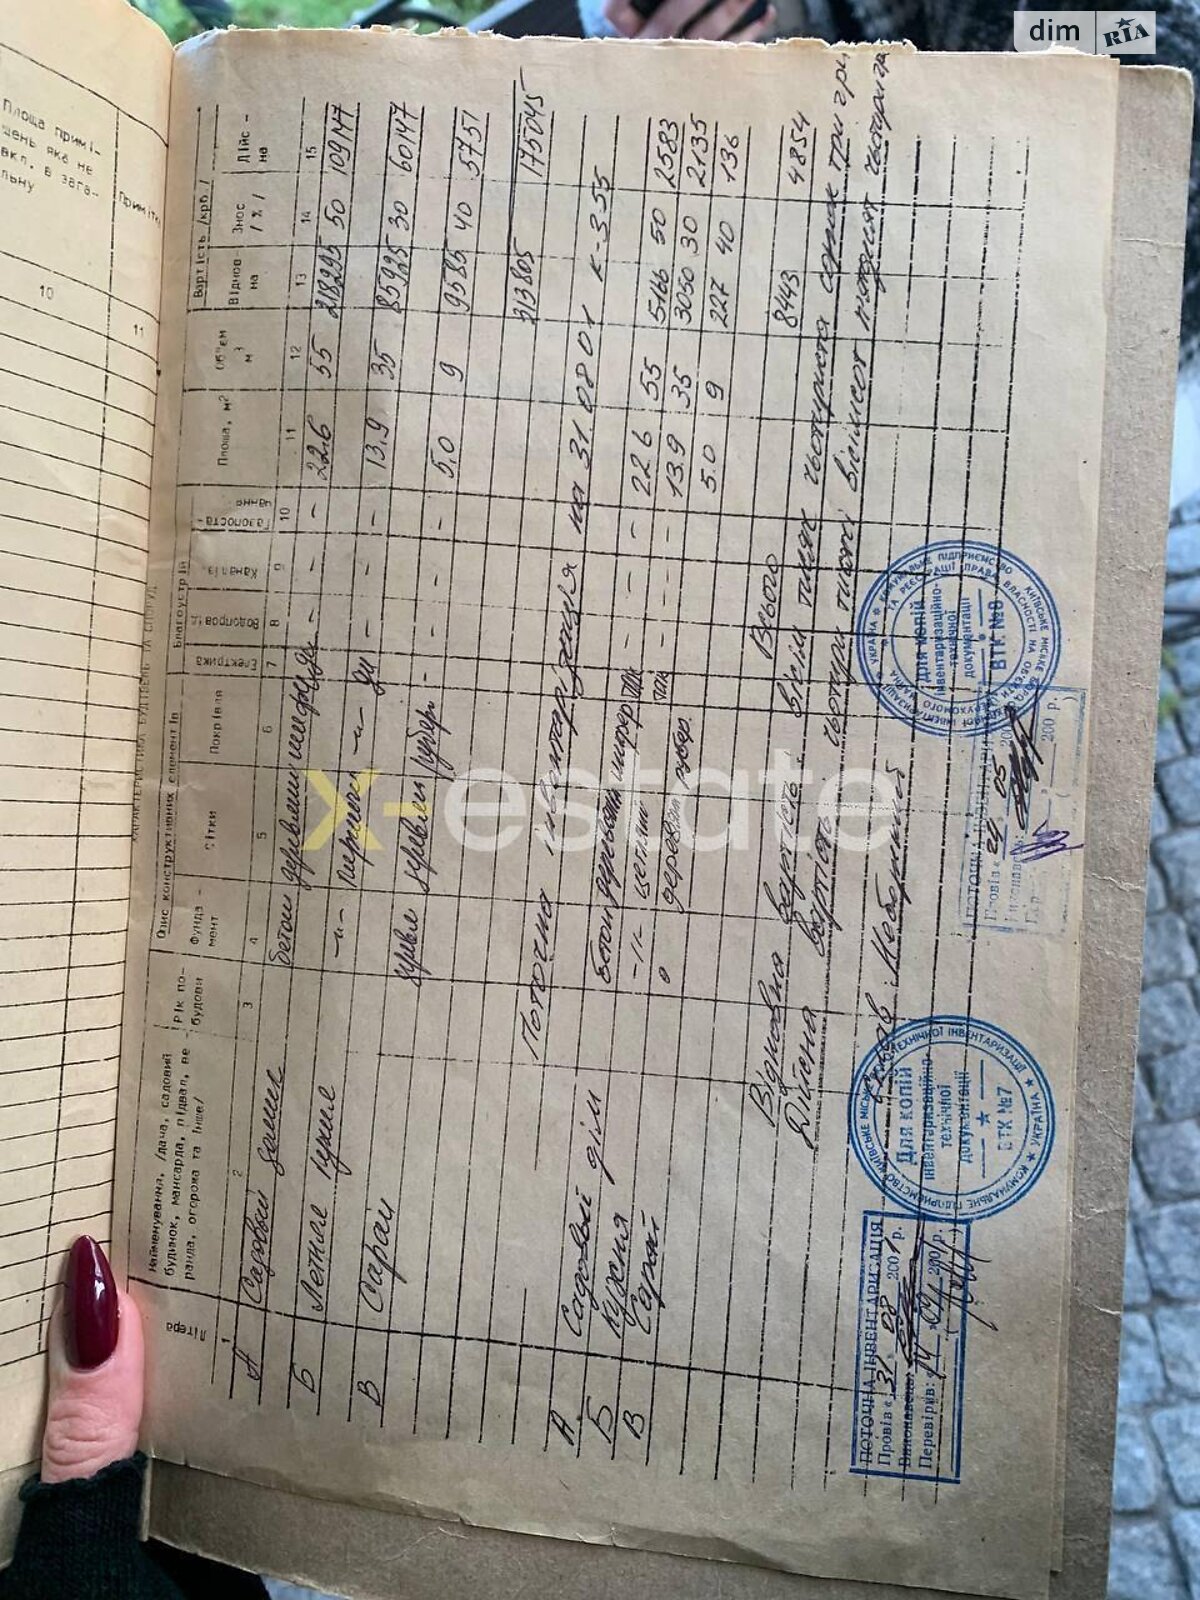 dim RIA
Площа примі-
щень яка не
вкл. в зага-
льну
Примітки
10
11
ХАРАКТЕРИСТИКА БУДІВЕЛЬ ТА СПОРУД
Літера
Найменування, /дача, садовий
будинок, мансарда, підвал, ве -
ранда, огорожа та інше/
Рік по-
будови
Опис конструктивних елементів
Фунда -
мент
Стіни
Покрівля
Благоустрій
Електрика
Водопровід
Каналіз.
Газопоста-
чання
Площа, м²
Об'єм
м³
Вартість /крб./
Віднов
на
Знос
/ % /
Дійс -
на
1 2 3 4 5 6 7 8 9 10 11 12 13 14 15
А Садовый домик бетон деревян шифер - - - 22.6 55 218295 50 109147
Б Летняя кухня -"- кирпич -"- - - - 13.9 35 85925 30 60147
В Сарай деревян рубер - - - - 5.0 9 9585 40 5751
313805 175045
Поточна інвентарізація на 31.08.01 К-3.55
А Садовый дім бетон шифер - - - 22.6 55 5166 50 2583
Б Кухня -"- цегляні - - - 13.9 35 3050 30 2135
В Сарай дерев'ян рубер. - - - 5.0 9 227 40 136
Всього 8443 4854
Відновна вартість - вісім тисяч чотириста сорок три грн
Дійсна вартість - чотири тисячі вісімсот п'ятдесят чотири гр
x-estate
ПОТОЧНА ІНВЕНТАРИЗАЦІЯ
Провів « 31 » 08 2001 р.
Виконавець:
Перевірив: « 14 » 09 2001 р.
КОМУНАЛЬНЕ ПІДПРИЄМСТВО КИЇВСЬКЕ МІСЬКЕ БЮРО ТЕХНІЧНОЇ ІНВЕНТАРИЗАЦІЇ ★ УКРАЇНА ★
Для копій
інвентаризаційно-
технічної
документації
ВТК №7
ПОТОЧНА ІНВЕНТАРИЗАЦІЯ
Провів « 24 » 05 200
Виконавець:
200 р.
★ УКРАЇНА ★ КОМУНАЛЬНЕ ПІДПРИЄМСТВО КИЇВСЬКЕ МІСЬКЕ БЮРО
ТА РЕЄСТРАЦІЇ ПРАВА ВЛАСНОСТІ НА ОБ'ЄКТИ НЕРУХОМОГО МАЙНА
Для копій
інвентаризаційно-
технічної
документації
ВТК №8